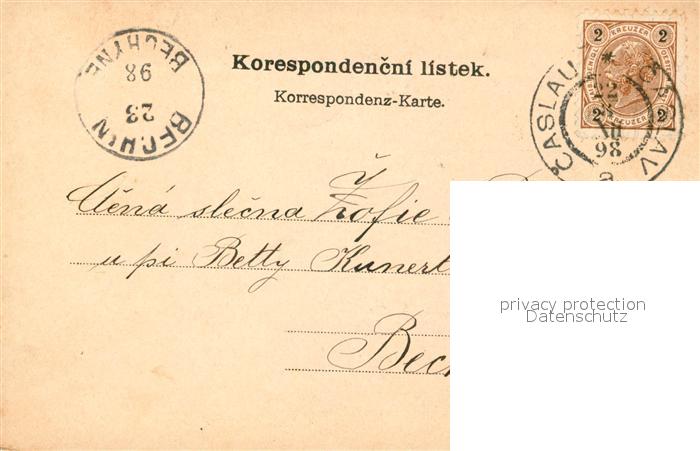 BECHIN
23
98
BECHYNĚ
Korespondenční lístek.
Korrespondenz-Karte.
2 KREUZER 2
2 KREUZER 2
ČASLAU
ČÁSLAV
22
XII
98
a
Ctěná slečna Žofie
u pí Betty Kunert
Bec
privacy protection
Datenschutz